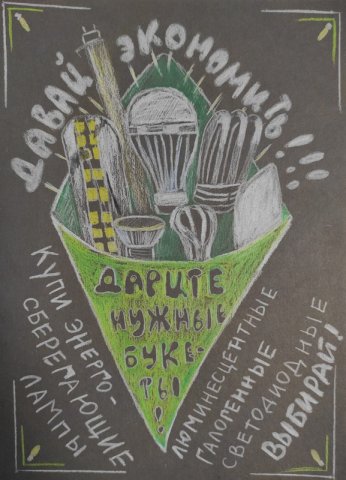 ДАВАЙ ЭКОНОМИТЬ!!!
ДАРИТЕ
НУЖНЫЕ
БУКЕ-
ТЫ!
КУПИ ЭНЕРГО-
СБЕРЕГАЮЩИЕ
ЛАМПЫ
ЛЮМИНЕСЦЕНТНЫЕ
ГАЛОГЕННЫЕ
СВЕТОДИОДНЫЕ
ВЫБИРАЙ!